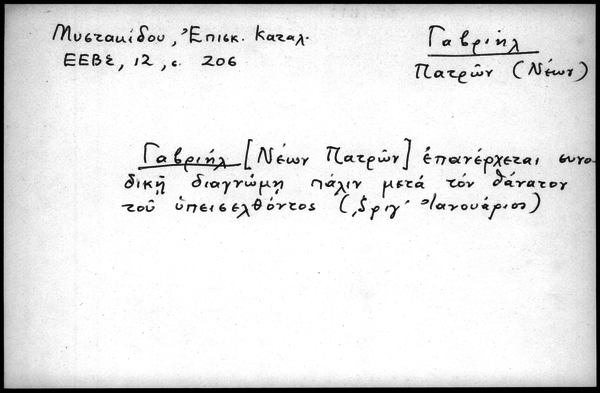 Μυστακίδου, Ἐπισκ. Καταλ.
ΕΕΒΣ, 12, σ. 206
Γαβριήλ
Πατρῶν (Νέων)
Γαβριήλ [Νέων Πατρῶν] ἐπανέρχεται συνο-
δικῇ διαγνώμῃ πάλιν μετά τόν θάνατον
τοῦ ὑπεισελθόντος (͵ζριγ´ Ἰανουάριος)